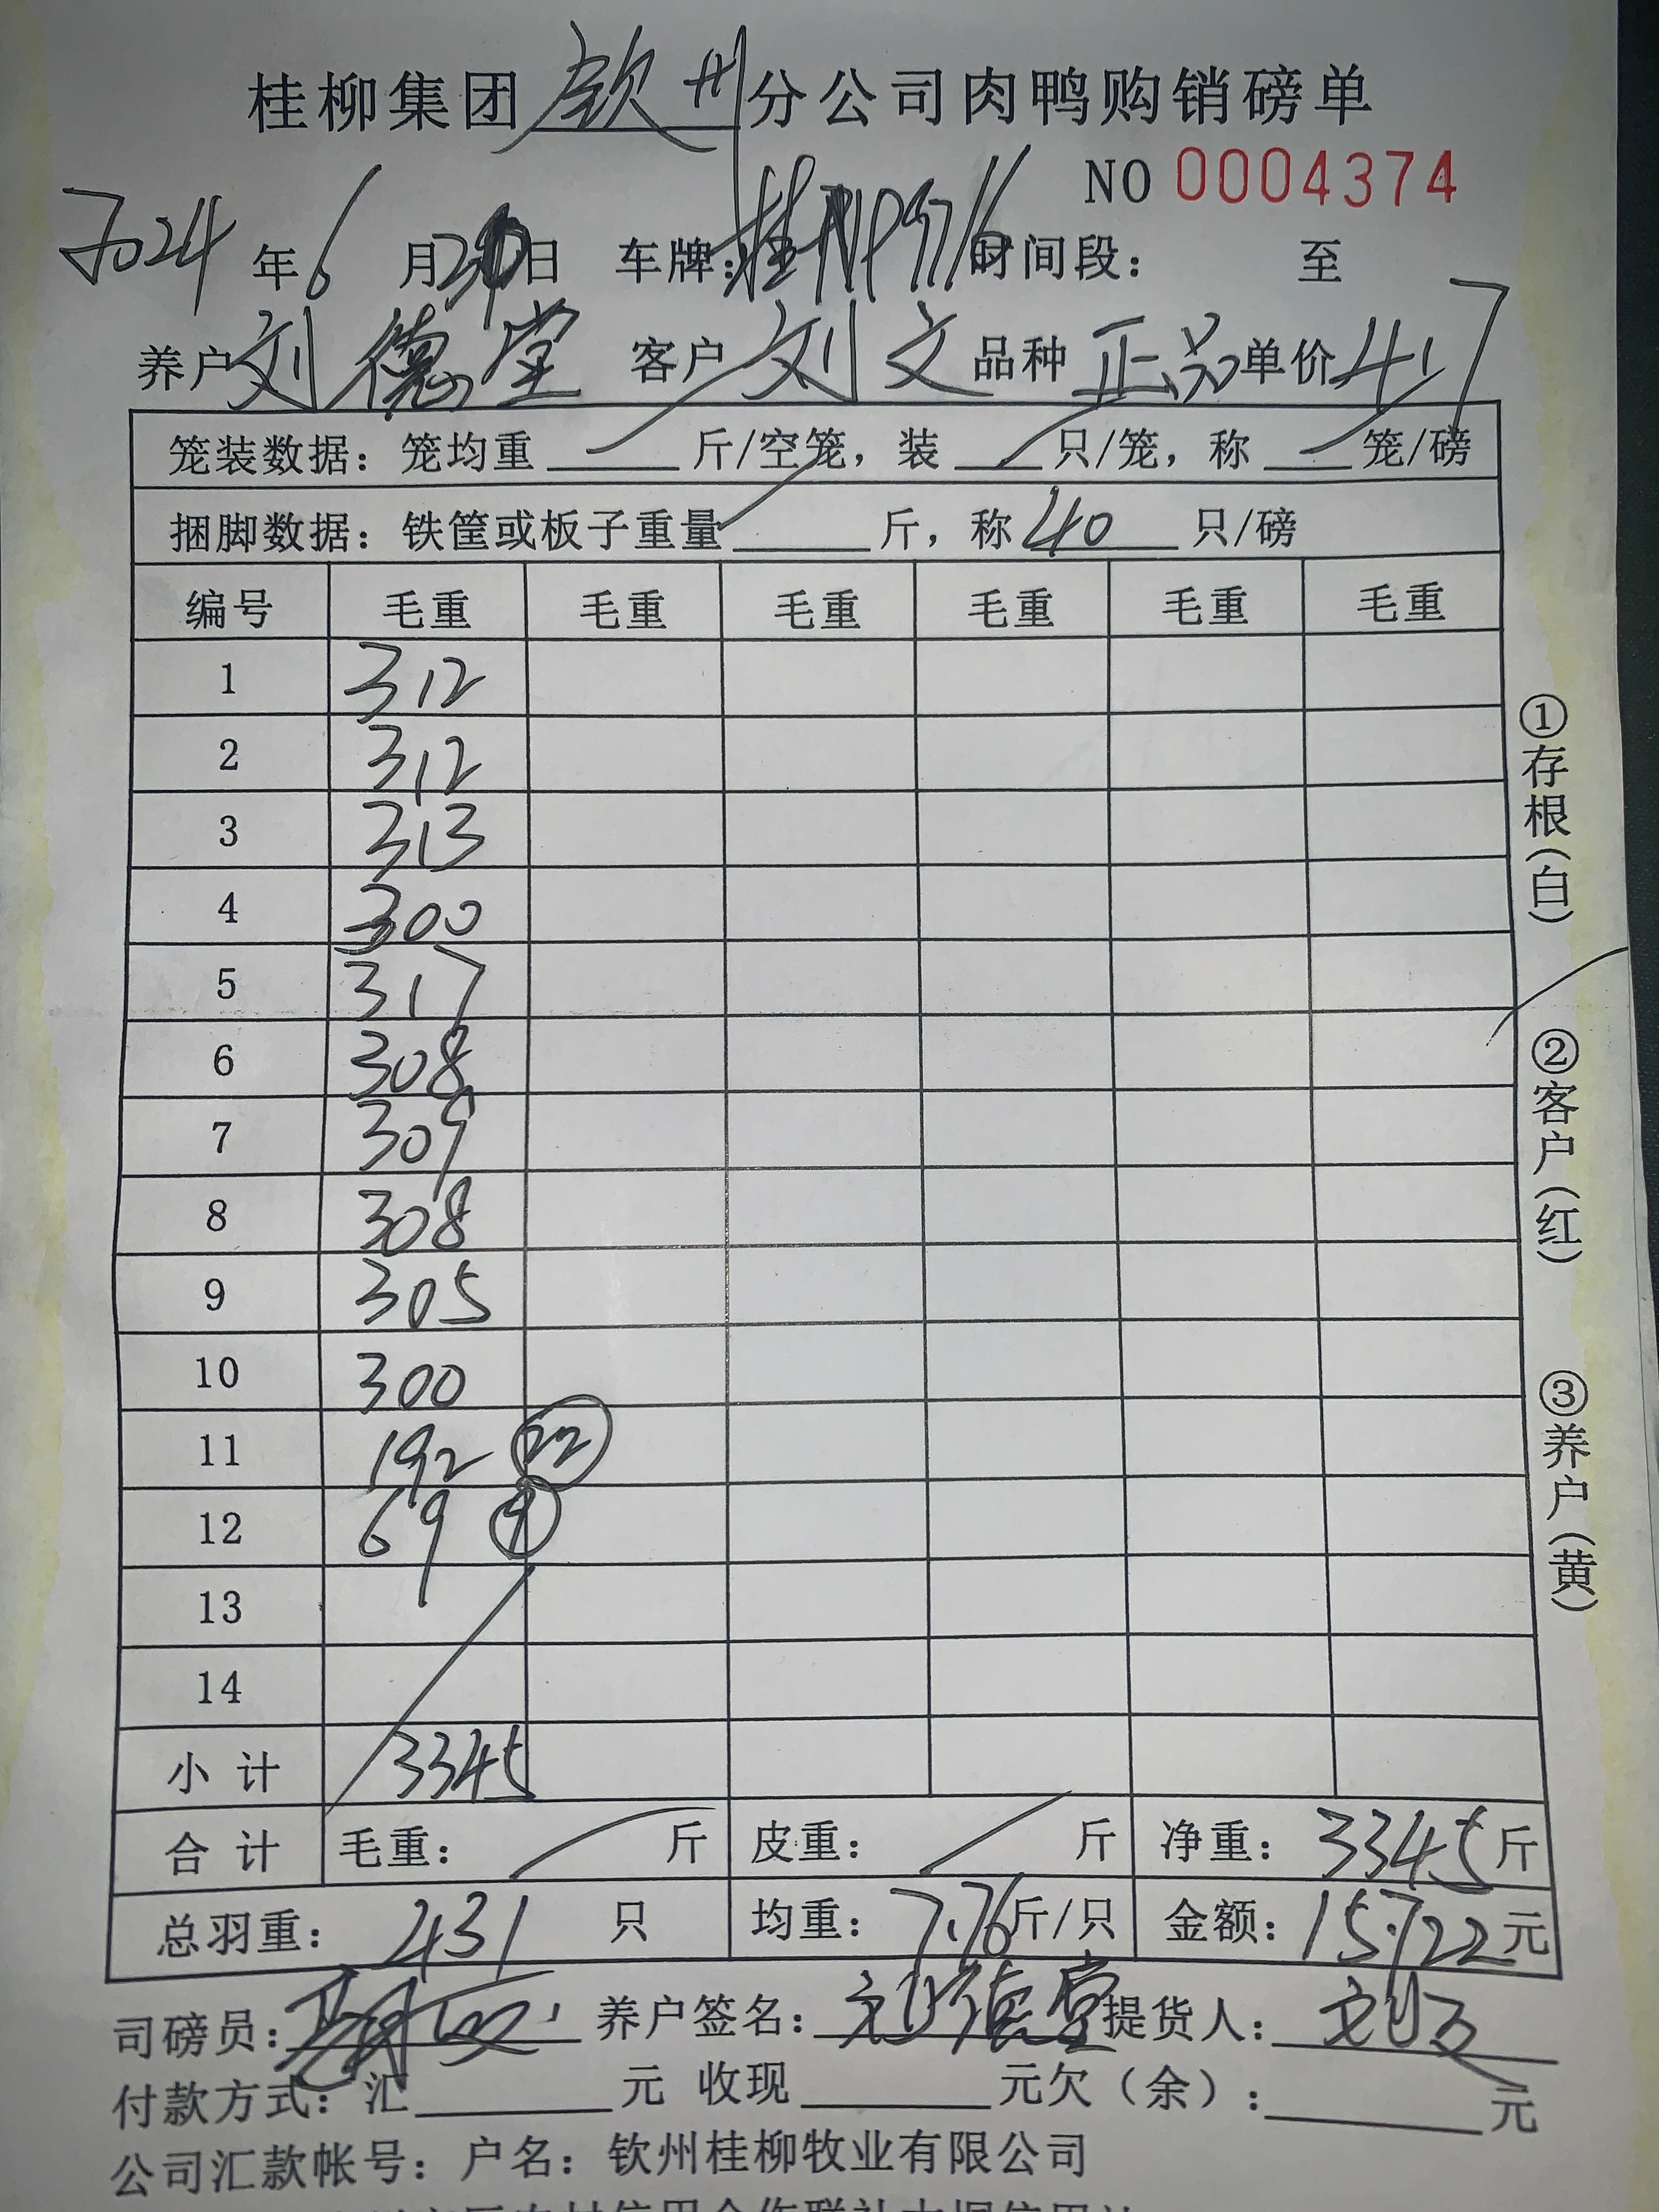 桂柳集团钦州分公司肉鸭购销磅单
NO 0004374
2024年6月日 车牌：桂 时间段： 至
养户刘德堂 客户刘文 品种正品 单价4.7
笼装数据：笼均重 斤/空笼，装 只/笼，称 笼/磅
捆脚数据：铁筐或板子重量 斤，称40只/磅
编号 毛重 毛重 毛重 毛重 毛重 毛重
1 312
2 312
3 313
4 300
5 317
6 308
7 309
8 308
9 305
10 300
11 192 22
12 69 9
13
14
小计 3345
合计 毛重： 斤 皮重： 斤 净重：3345斤
总羽重：431只 均重：7.76斤/只 金额：15.722元
司磅员： 养户签名：刘德堂 提货人：刘文
付款方式：汇 元 收现 元欠（余）： 元
公司汇款帐号：户名：钦州桂柳牧业有限公司
①存根（白）
②客户（红）
③养户（黄）